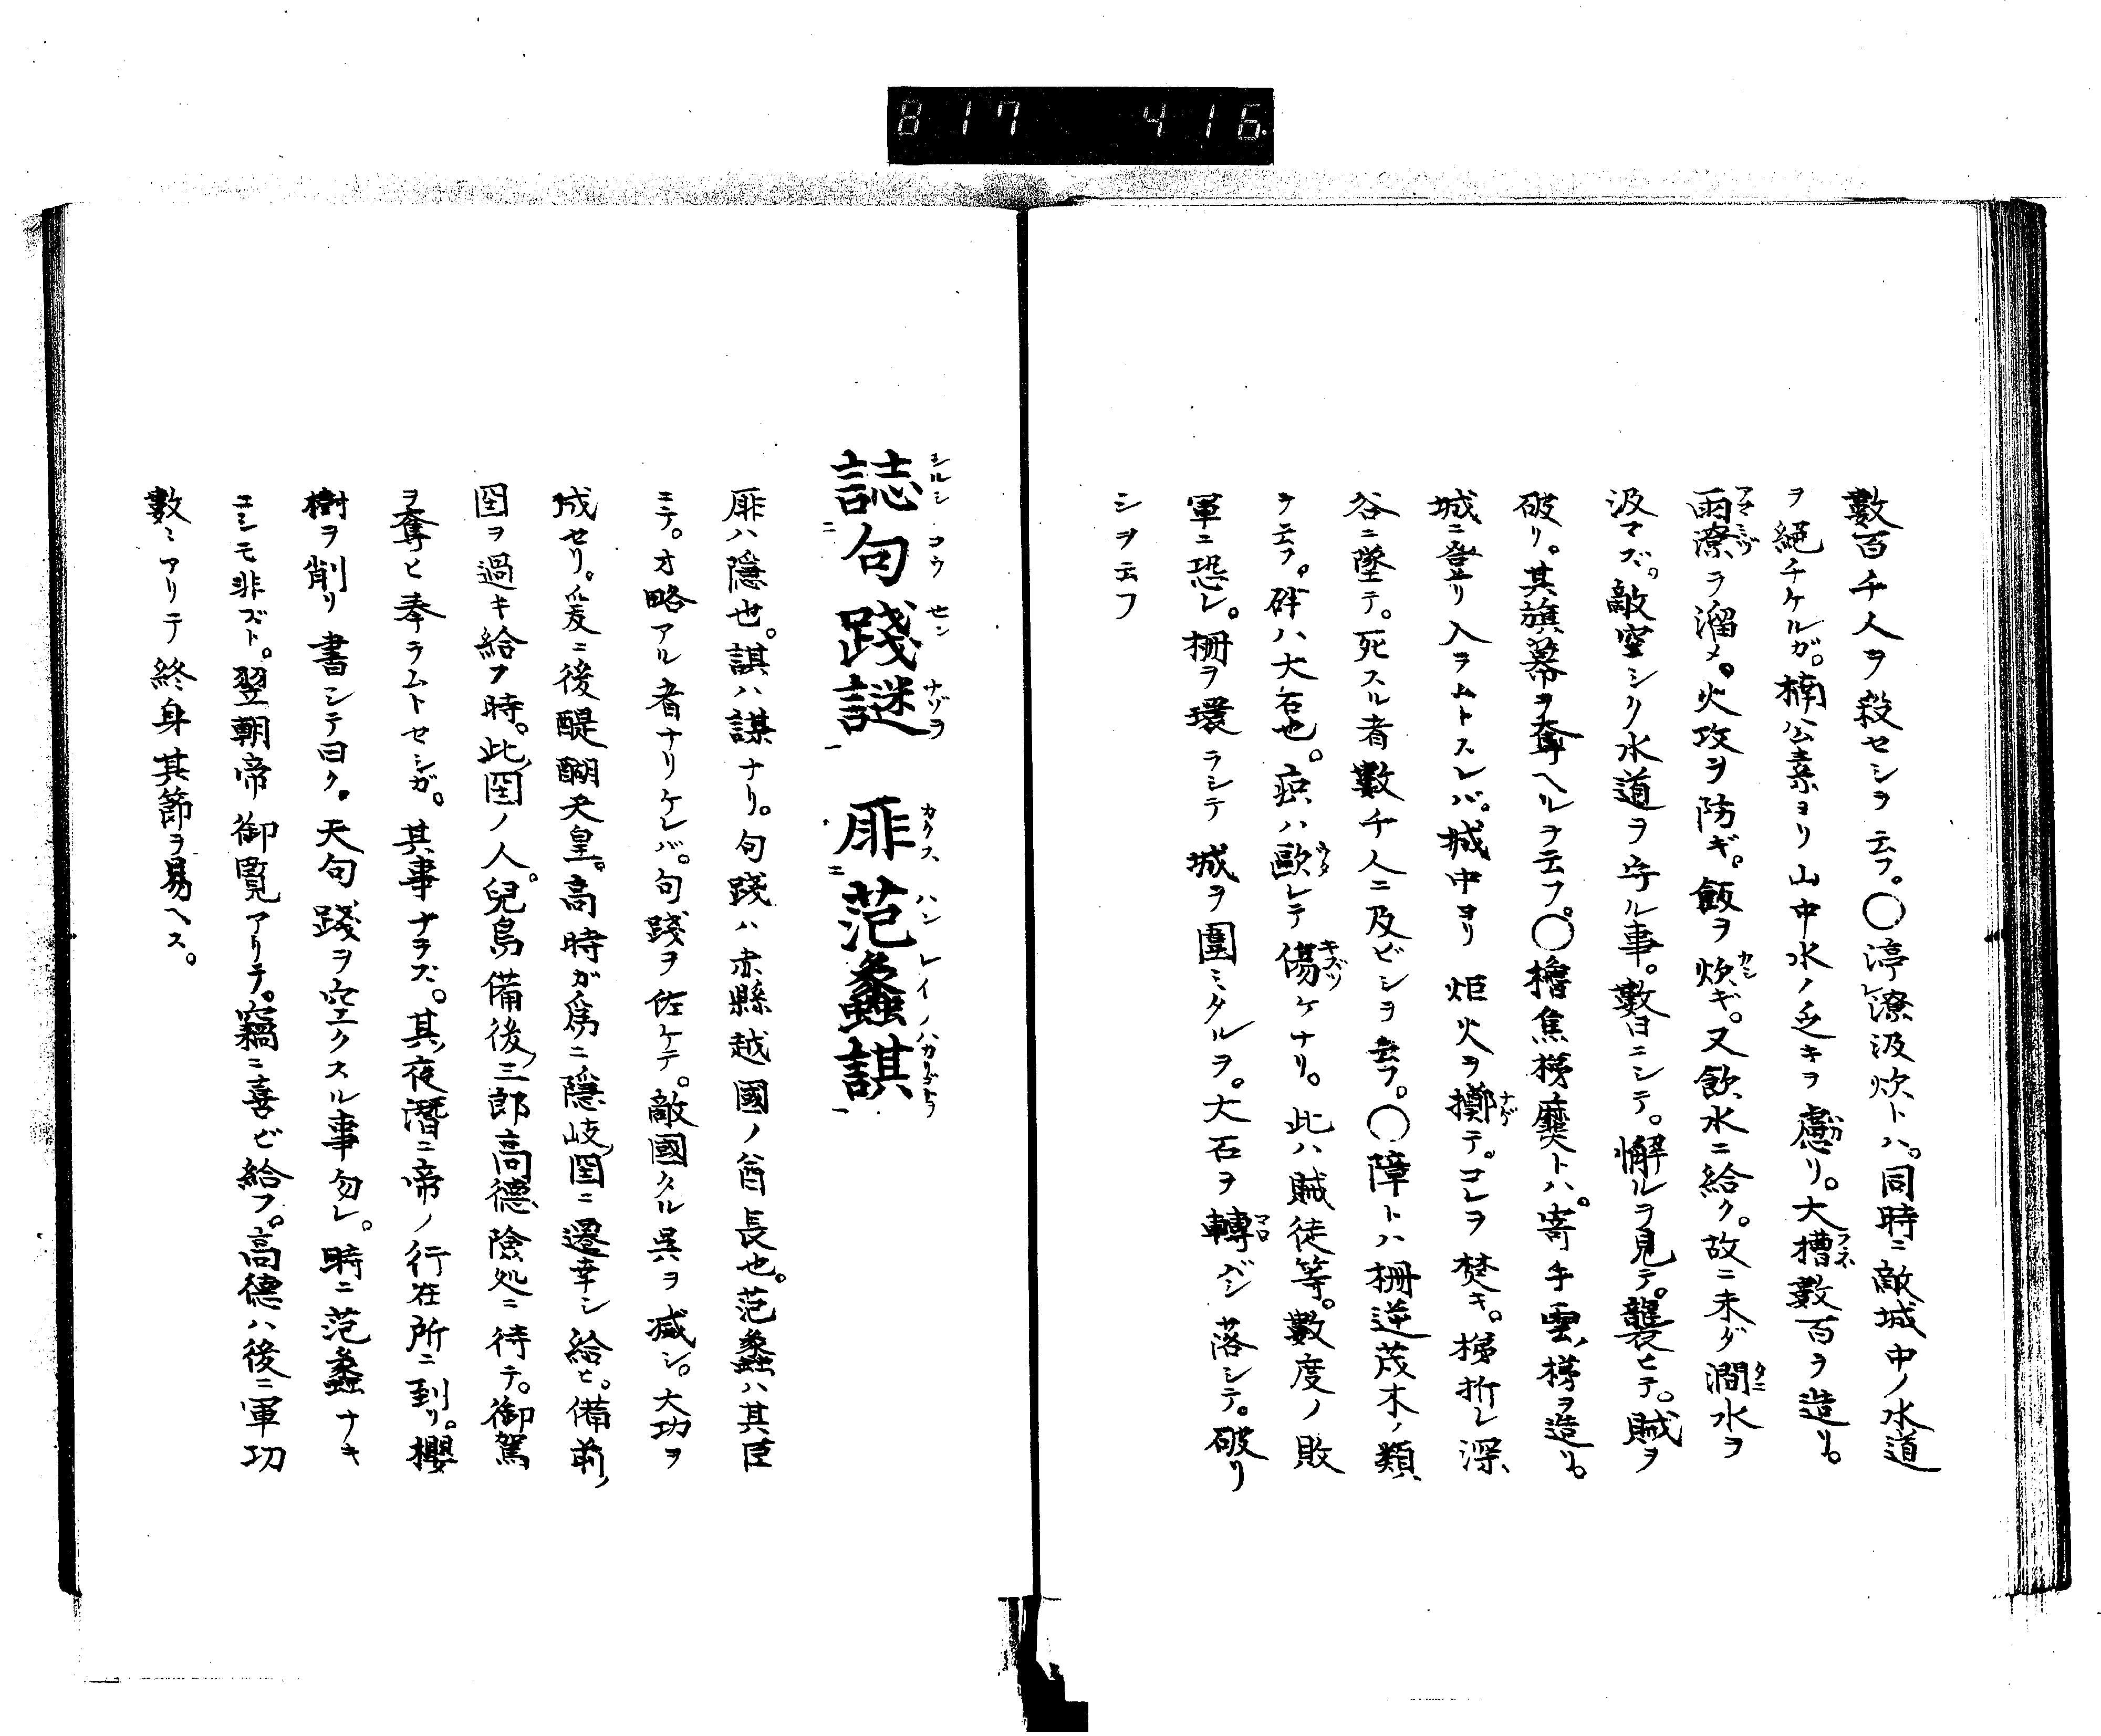 817 416.
數百千人ヲ殺セシヲ云フ。○渟潦汲炊トハ。同時ニ敵城中ノ水道
ヲ絕チケルガ。楠公素ヨリ山中水ノ乏キヲ慮リ。大槽數百ヲ造リ。
雨潦ヲ溜メ。火攻ヲ防ギ。飯ヲ炊ギ。又飲水ニ給ク。故ニ未ダ澗水ヲ
汲マズ。敵空シク水道ヲ守ル事。數日ニシテ。懈ルヲ見テ。襲ヒテ。賊ヲ
破リ。其旗幕ヲ奪ヘルヲ云フ。○櫓焦梯爨トハ。寄手雲梯ヲ造リ。
城ニ登リ入ヲムトスレバ。城中ヨリ炬火ヲ擲テ。コレヲ焚キ。梯折レ深
谷ニ墜テ。死スル者數千人ニ及ビシヲ云フ。○障トハ柵逆茂木ノ類
ヲ云フ。硑ハ大石也。痕ハ歐レテ傷ケナリ。此ハ賊徒等。數度ノ敗
軍ニ恐レ。柵ヲ環ラシテ城ヲ圍ミタルヲ。大石ヲ轉バシ落シテ。破リ
シヲ云フ
誌句踐謎 厞范蠡諆
シルシ コウ セン ナゾヲ カクス ハン レイノ ハカリゴトヲ
厞ハ隱也。諆ハ謀ナリ。句踐ハ赤縣越國ノ酋長也。范蠡ハ其臣
ニテ。才略アル者ナリケレバ。句踐ヲ佐ケテ。敵國タル吳ヲ滅シ。大功ヲ
成セリ。爰ニ後醍醐天皇。高時ガ爲ニ隱岐国ニ遷幸シ給ヒ。備前
国ヲ過キ給フ時。此国ノ人。兒島備後三郎高德險処ニ待テ。御駕
ヲ奪ヒ奉ラムトセシガ。其事ナラズ。其夜潛ニ帝ノ行在所ニ到リ。櫻
樹ヲ削リ書シテ曰ク。天句踐ヲ空クスル事勿レ。時ニ范蠡ナキ
ニシモ非ズト。翌朝帝御覽アリテ。竊ニ喜ビ給フ。高德ハ後ニ軍功
數ミアリテ終身其節ヲ易ヘス。